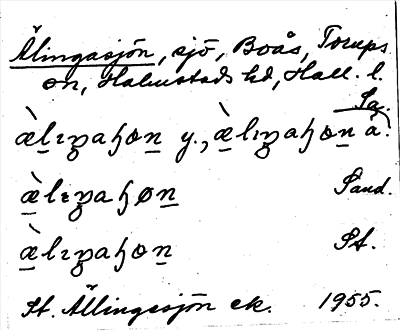 Älingasjön, sjö, Boås, Torups
sn, Halmstads hd, Hall. l.
Sa.
æ̀lɪŋaɧøn y., æ̀lɪŋaɧøn ä.
æ̀lɪŋaɧøn Sand.
æ̀lɪŋaɧøn St.
St. Ällingesjön ek. 1955.